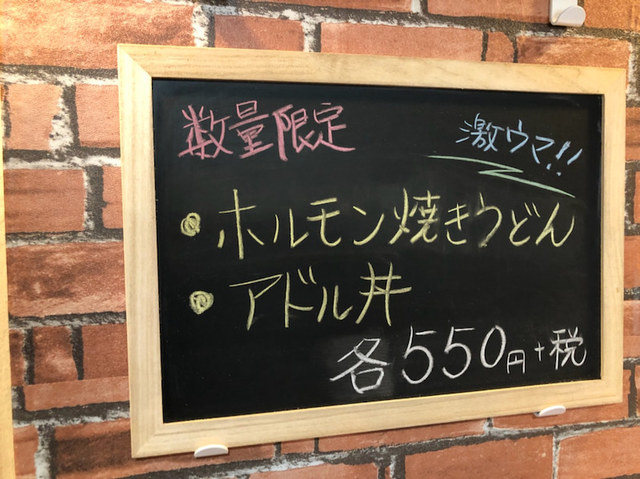 数量限定
激ウマ!!
• ホルモン焼きうどん
• アドル丼
各550円+税